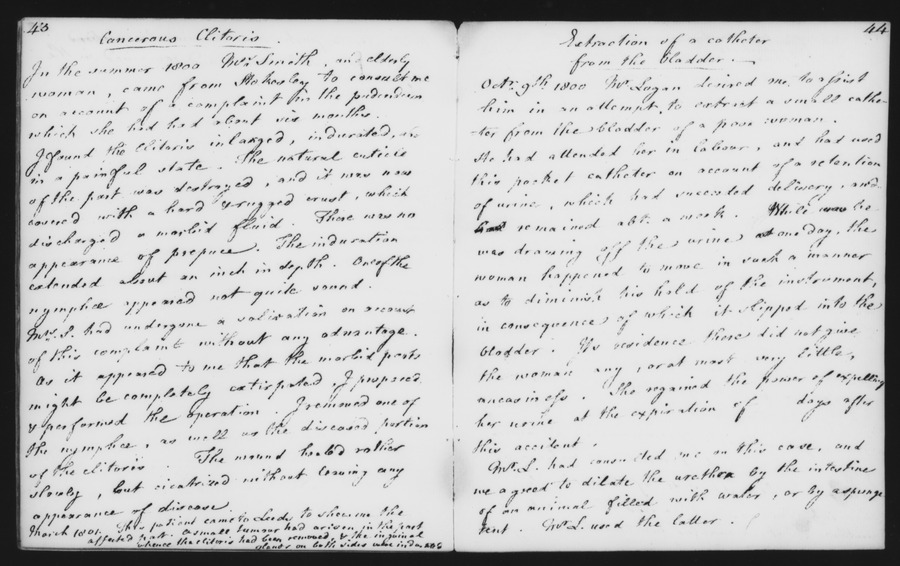 43
Cancerous Clitoris.
In the summer 1800 Mrs Smith, an elderly
woman, came from Stokesley to consult me
on account of a complaint in the pudendum
which she had had about six months.
I found the clitoris inlarged, indurated, &
in a painful state. The natural cuticle
of the part was destroyed, and it was now
covered with a hard & rugged crust, which
discharged a morbid fluid. There was no
appearance of prepuce. The induration
extended about an inch in depth. One of the
nymphæ appeared not quite sound.
Mrs. S. had undergone a salivation on account
of this complaint without any advantage.
As it appeared to me that the morbid parts
might be completely extirpated, I proposed
& performed the operation. I removed one of
the nymphæ, as well as the diseased portion
of the clitoris. The wound healed rather
slowly, but cicatrized without leaving any
appearance of disease.
March 1801. This patient came to Leeds to shew me the
affected part. A small tumour had arisen in the part
whence the clitoris had been removed, & the inguinal
glands on both sides were indurated
44
Extraction of a catheter
from the bladder.
Octr. 9th 1800 Mr Logan desired me to assist
him in an attempt to extract a small cathe-
-ter from the bladder of a poor woman.
He had attended her in labour, and had used
this pocket catheter on account of a retention
of urine, which had succeeded delivery, and
had remained abt. a week. While he
was drawing off the urine one day, the
woman happened to move in such a manner
as to diminish his hold of the instrument,
in consequence of which it slipped into the
bladder. Its residence there did not give
the woman any, or at most very little,
uneasiness. She regained the power of expelling
her urine at the expiration of days after
this accident.
Mr. L. had consulted me on this case, and
we agreed to dilate the urethra by the intestine
of an animal filled with water, or by a spunge
tent. Mr L. used the latter.